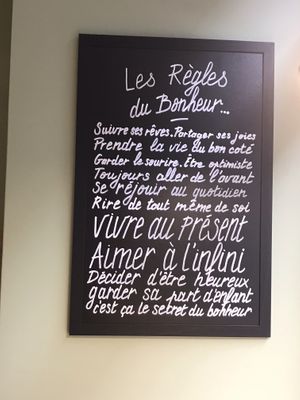 Les Règles
du Bonheur...
Suivre ses rêves. Partager ses joies
Prendre la vie du bon coté
Garder le sourire. Être optimiste
Toujours aller de l'avant
Se réjouir au quotidien
Rire de tout même de soi
vivre au Présent
Aimer à l'infini
Décider d'être heureux
garder sa part d'enfant
c'est ça le secret du bonheur